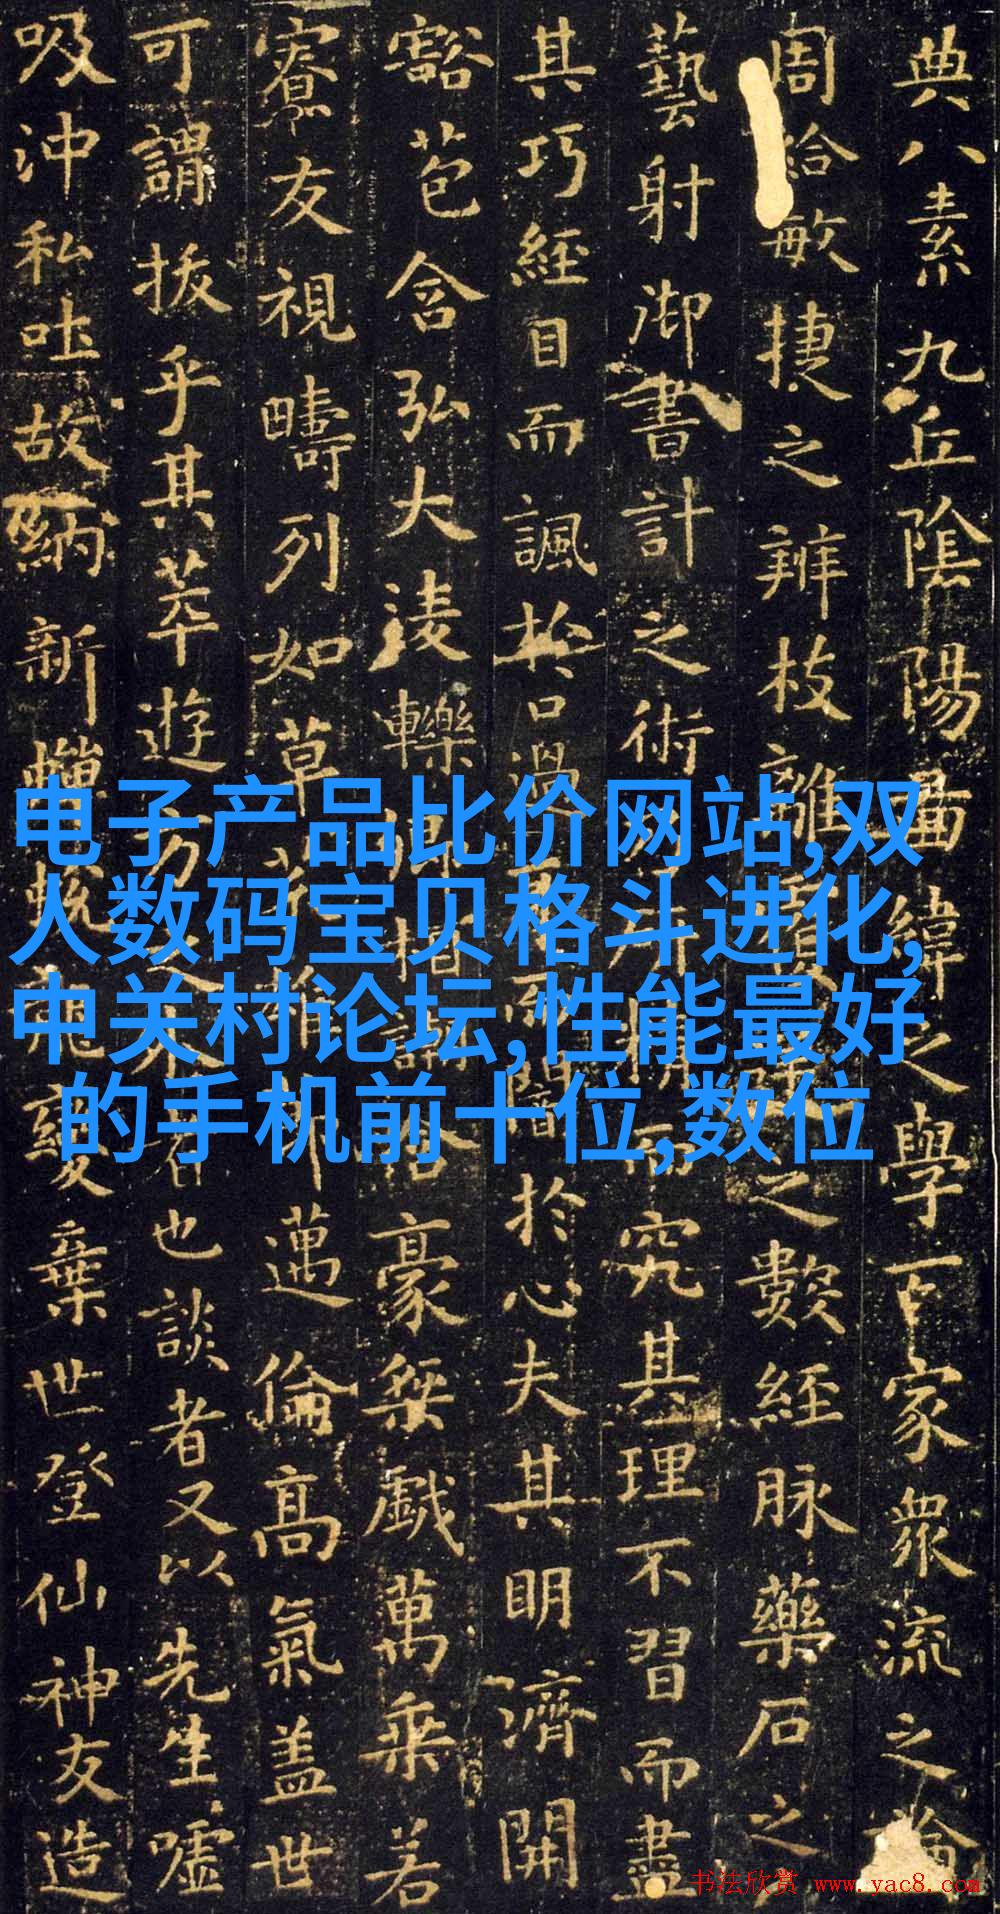 典八素九丘陰陽啚緯之學百家衆流之論
周給敏捷之辨枝離之數經脉藥石之
藝射御書計之術而究其理不習而盡
其巧經目而諷於口過而闇於心夫其明濟開
豁苞含弘大淩轢豪桀戲萬乘若
寮友視疇列如草邁倫高氣盖世
可謂拔乎其萃遊方之者也談者又以先生噓
吸沖和吐故納新蟬蛻龍變棄世登仙神友造
电子产品比价网站,双
人数码宝贝格斗进化,
中关村论坛,性能最好
的手机前十位,数位
书法欣赏 www.yac8.com